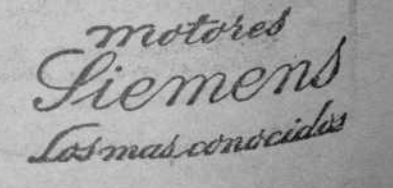 motores
Siemens
Los mas conocidos